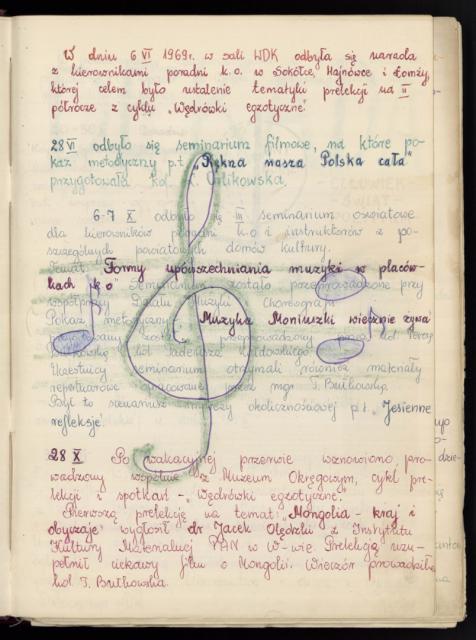 W dniu 6 VI 1969r. w sali WDK odbyła się narada
z kierownikami poradni k.o. w Sokółce, Hajnówce i Łomży,
której celem było ustalenie tematyki prelekcji na II
półrocze z cyklu „Wędrówki egzotyczne"
28 VI odbyło się seminarium filmowe, na które po-
kaz metodyczny p.t. „Piękna nasza Polska cała"
przygotowała kol. Z. Orlikowska.
6-7 X odbyło się III seminarium oświatowe
dla kierowników poradni k.o i instruktorów z po-
szczególnych powiatowych domów kultury.
Temat: „Formy upowszechniania muzyki w placów-
kach k o" Seminarium zostało przeprowadzone przy
współpracy Działu Muzyki i Choreografii
Pokaz metodyczny „Muzyka Moniuszki wiecznie żywa"
został przeprowadzony przez kol. Teresę
Butkowską i kol Tadeusza
Uczestnicy seminarium otrzymali również materiały
repertuarowe opracowane przez mgr T. Butkowską.
Był to scenariusz imprezy okolicznościowej p.t. „Jesienne
refleksje".
28 X Po wakacyjnej przerwie wznowiono, pro-
wadzony wspólnie z Muzeum Okręgowym, cykl pre-
lekcji i spotkań - „Wędrówki egzotyczne".
Pierwszą prelekcję na temat „Mongolia - kraj i
obyczaje" wygłosił dr Jacek Olędzki z Instytutu
Kultury Materialnej PAN w W-wie Prelekcję uzu-
pełnił ciekawy film o Mongolii. Wieczór prowadziła
kol. T. Butkowska.